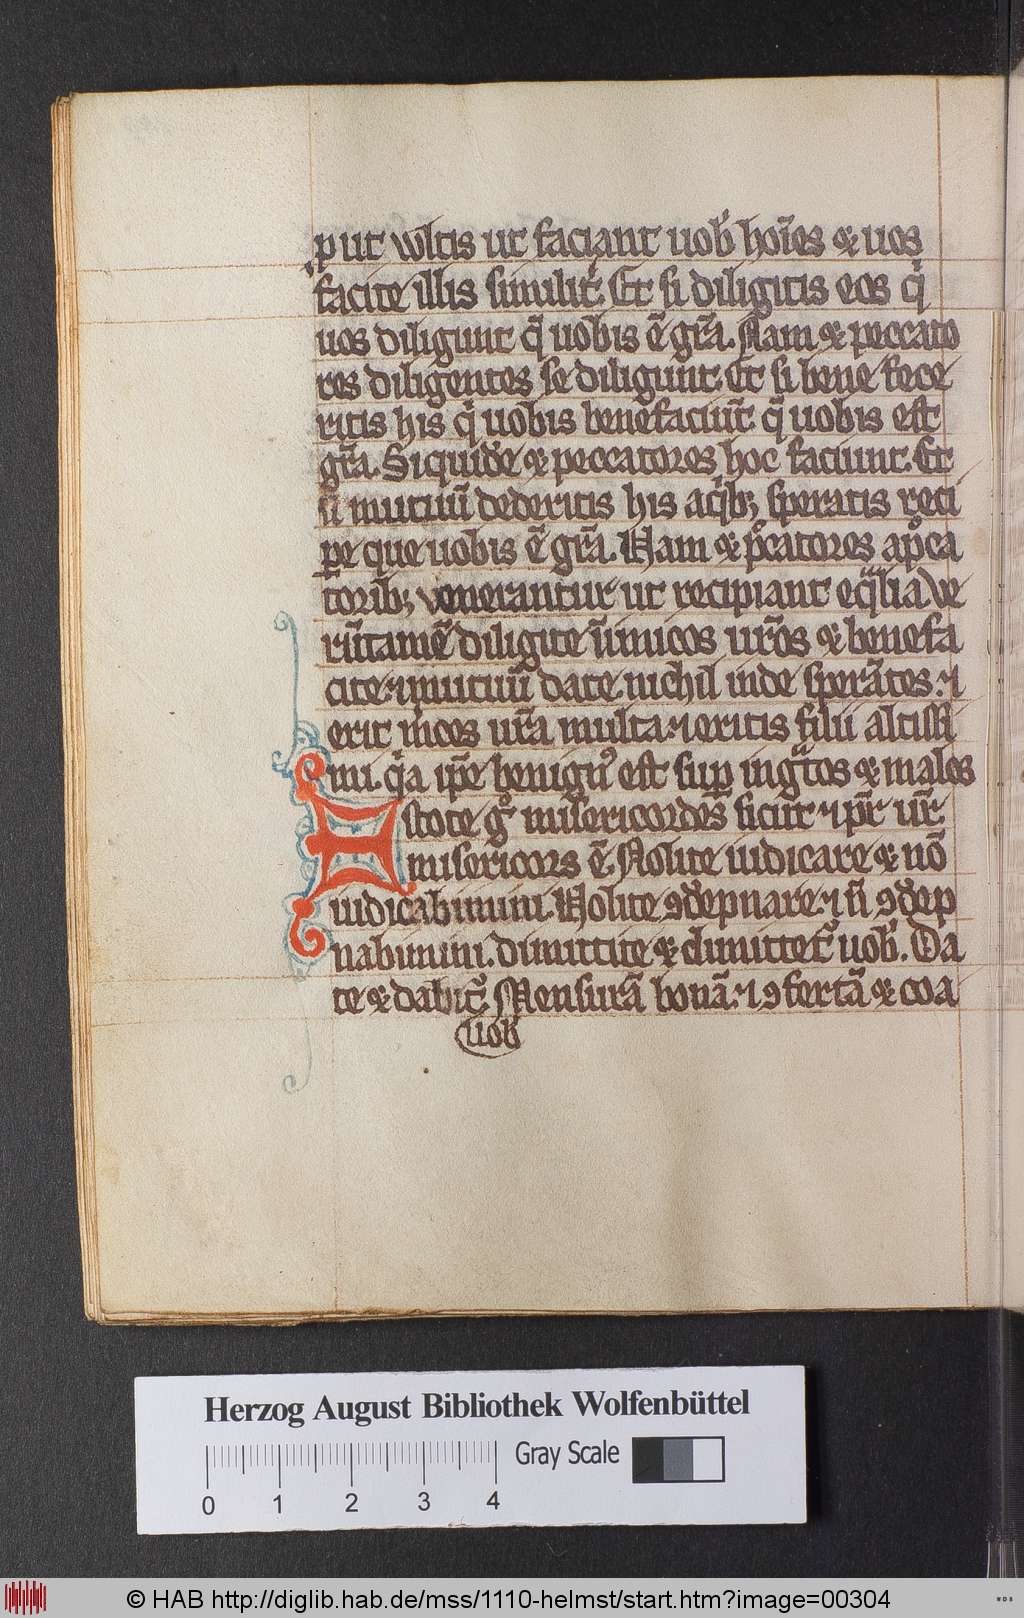 p ut wltis ut faciant uob̾ hoı̅es & uos
facite illis similit̾. Et si diligitis eos q̇
uos diligunt q̅ uobis e̅ gr̅a. Nam & peccato
res diligentes se diligunt. Et si bene fece
ritis his q̇ uobis benefaciu̅t. q̅ uobis est
gr̅a. Siquide̅ & peccatores hoc faciunt. Et
si mutuu̅ dederitis his aq̇bꝫ speratis reci
pe que uobis e̅ gr̅a. Nam & pͨcatores apͨca
toribꝫ venerantur ut recipiant eq̇lia Ve
ru̅tame̅ diligite i̅imicos ur̅os & benefa
cite. ⁊ mutuu̅ date. nichil inde spera̅tes. ⁊
erit m̾ces ur̅a multa. ⁊ eritis filii altissi
mi. q̇a ip̅e benignꝰ est sup̅ ingᵃtos & malos
Estote gͦ misericordes sicut ⁊ pr̅ ur̅
misericors e̅. Nolite iudicare & no̅
iudicabimini. Nolite ꝯde̅pnare. ⁊ n̅ ꝯde̅p
nabimini. dimittite & dimittet᷑ uob̾. Da
te & dabit᷑. Mensura̅ bona̅. ⁊ ꝯferta̅ & coa
uob̾
Herzog August Bibliothek Wolfenbüttel
Gray Scale
0 1 2 3 4
© HAB http://diglib.hab.de/mss/1110-helmst/start.htm?image=00304